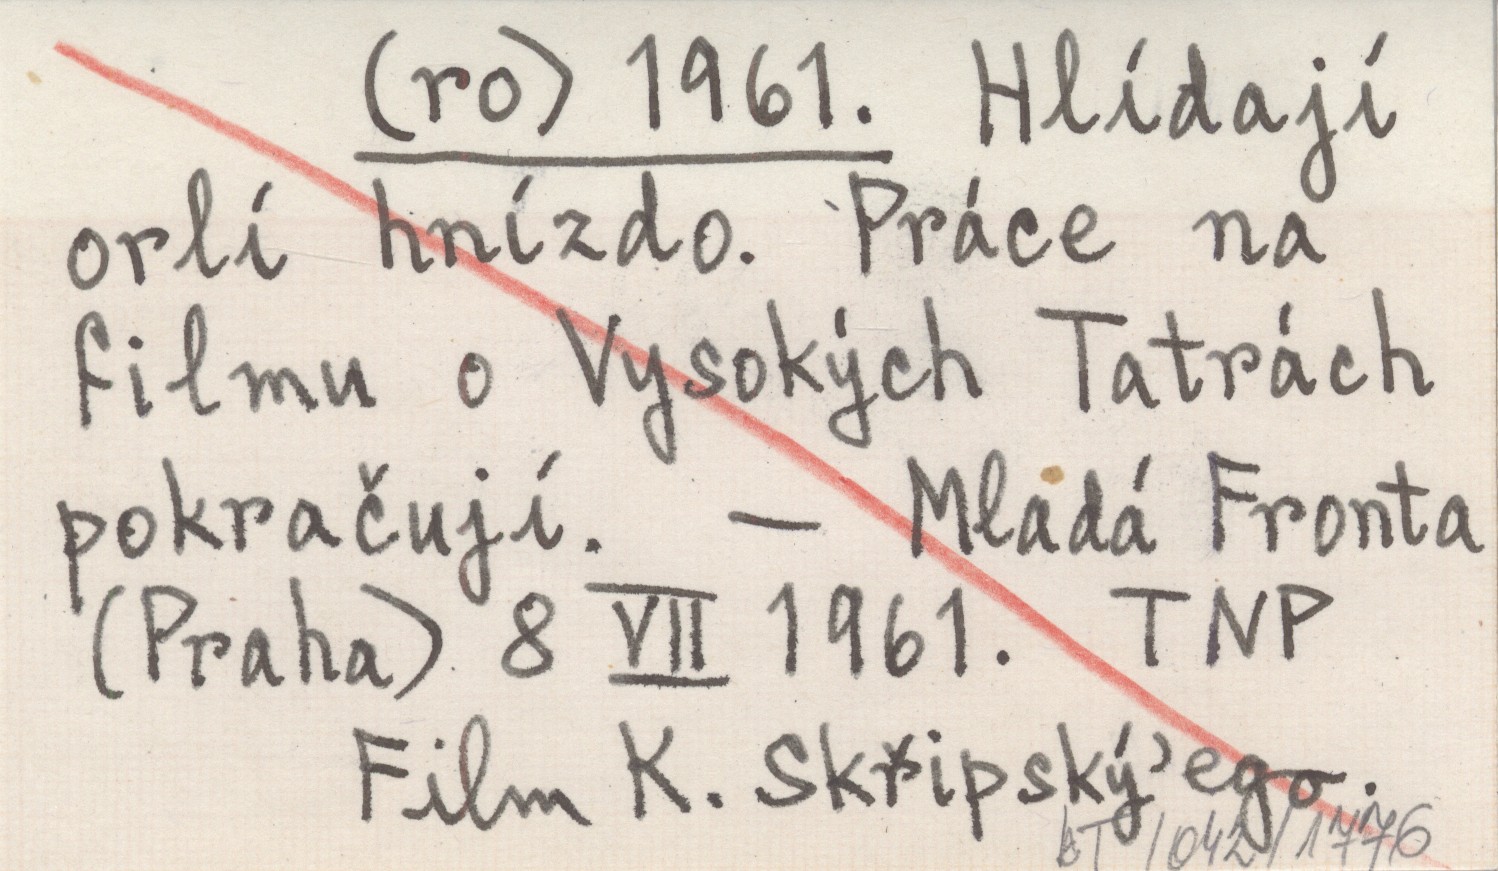 (ro) 1961. Hlídají
orlí hnízdo. Práce na
filmu o Vysokých Tatrách
pokračují. — Mladá Fronta
(Praha) 8 VII 1961. TNP
Film K. Skřipský'ego.
kT/042/1776